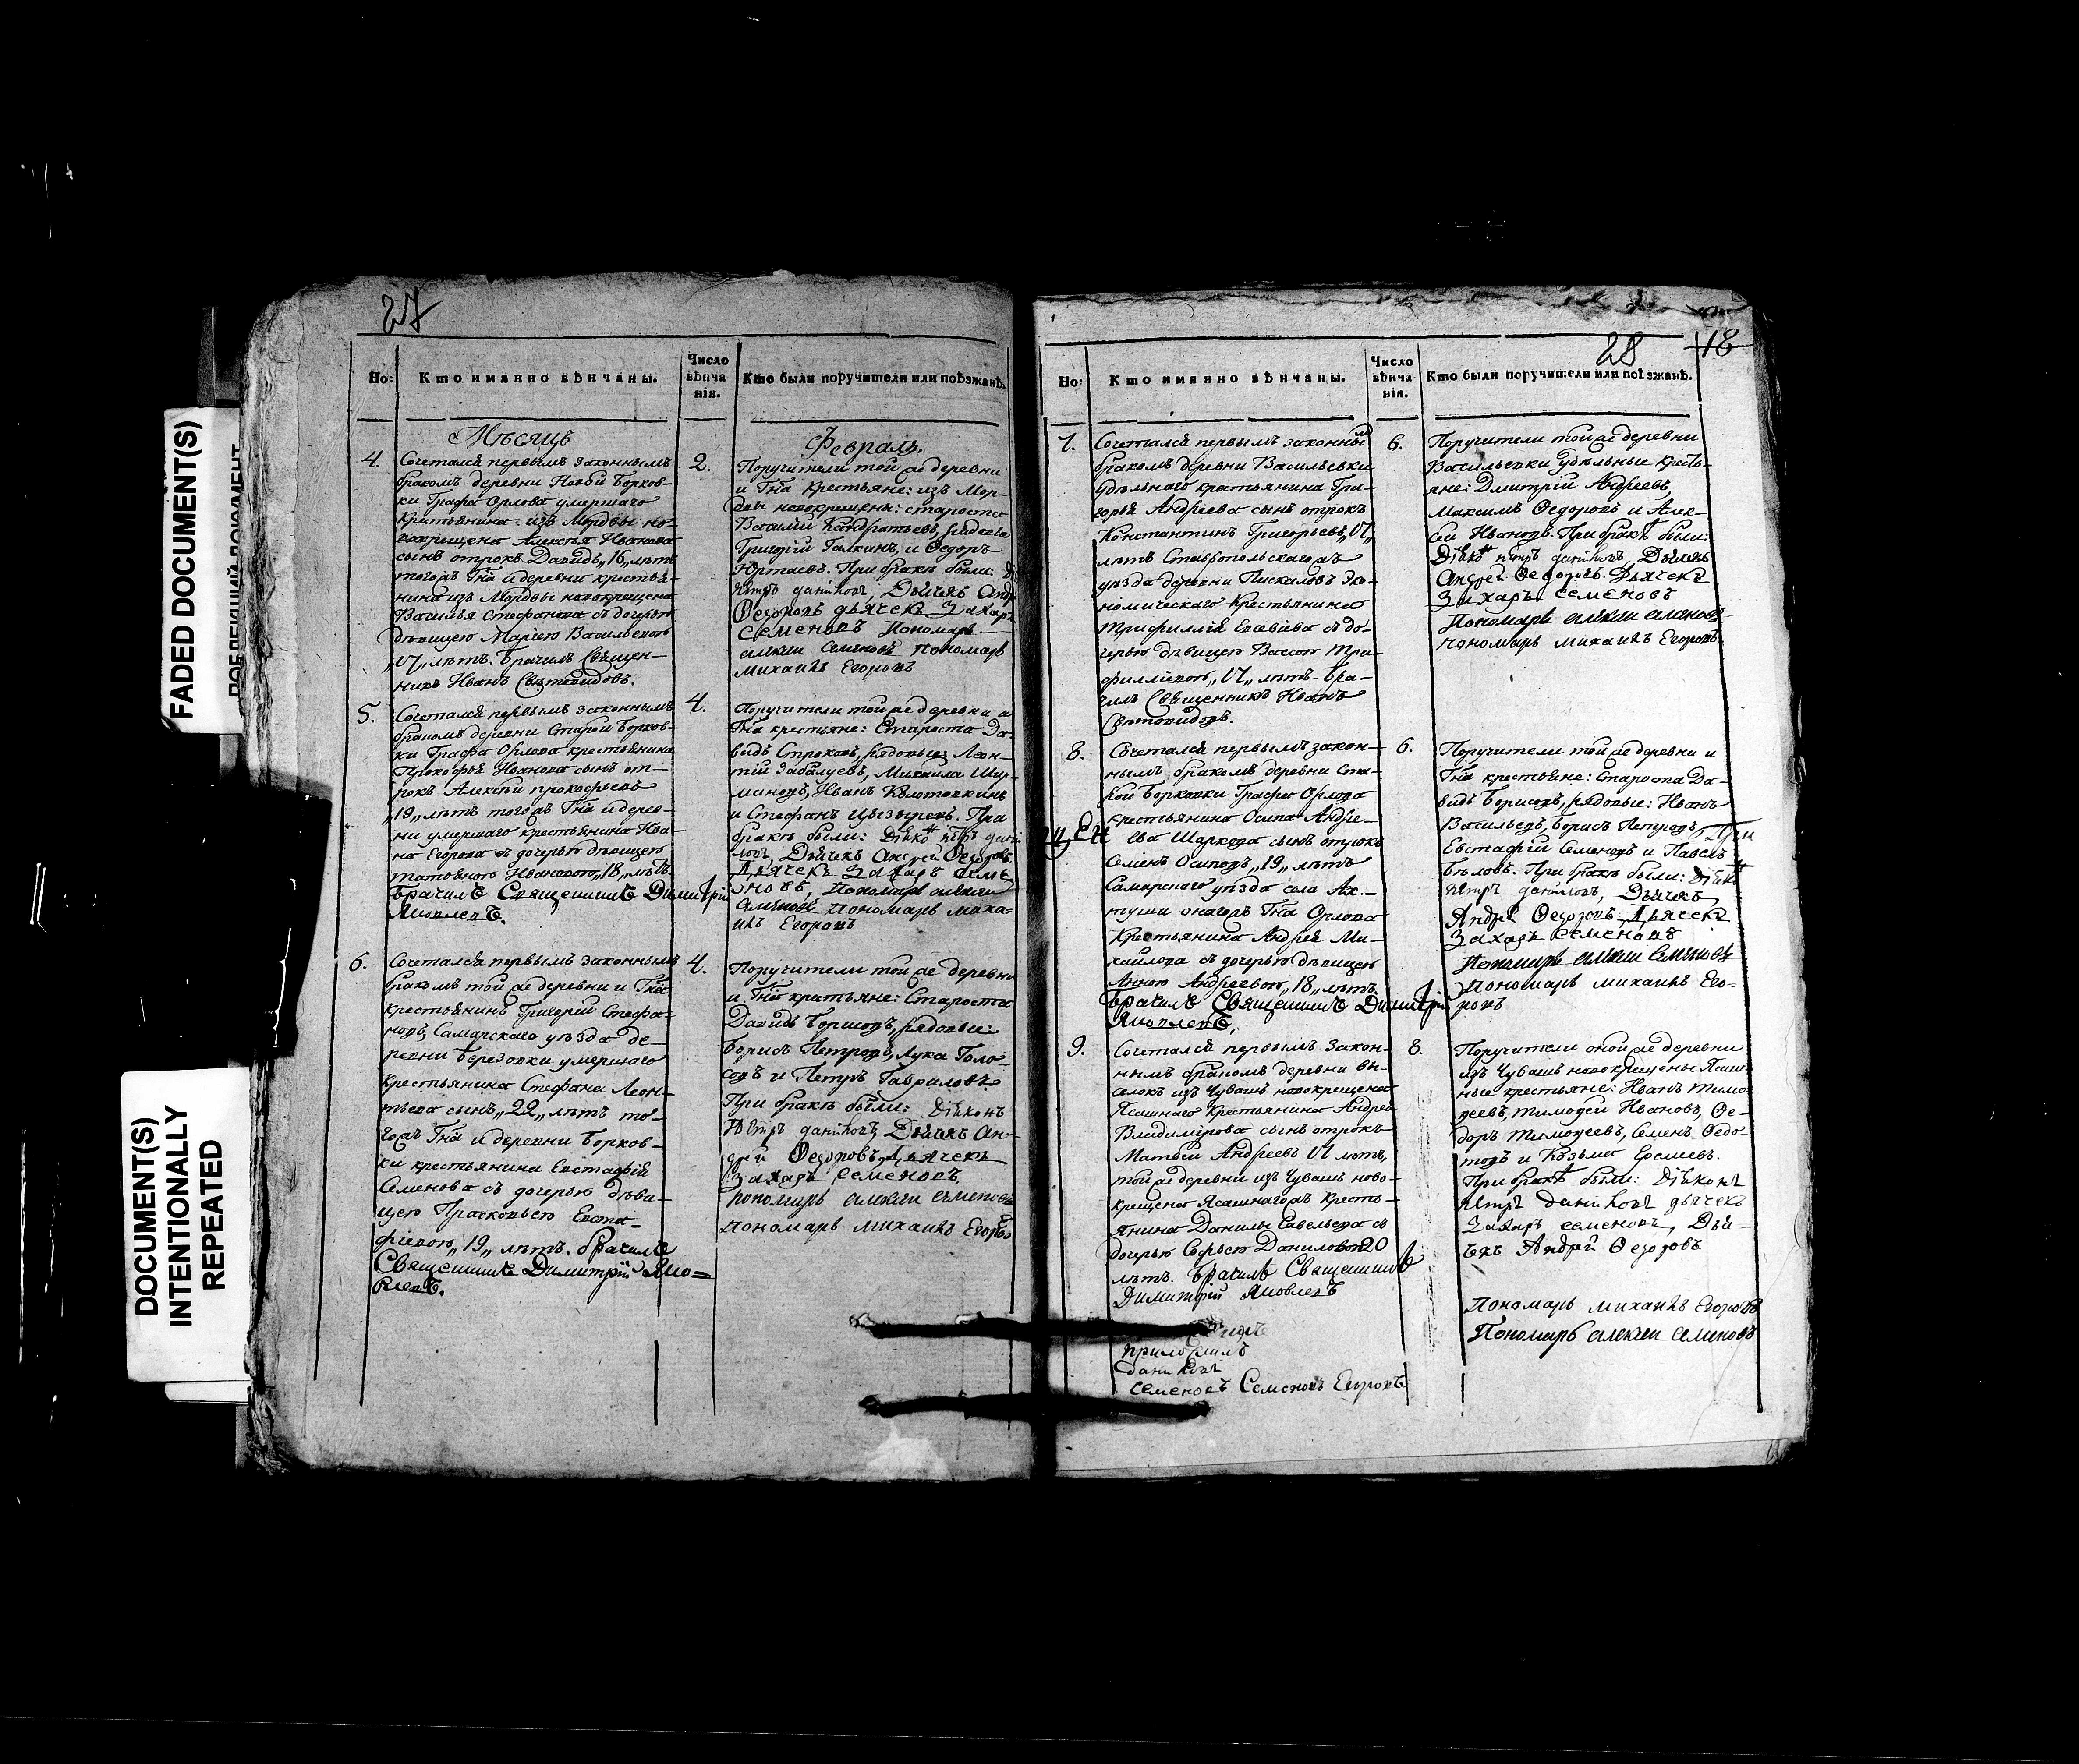 FADED DOCUMENT(S)
DOCUMENT(S)
INTENTIONALLY
REPEATED
27
Но:
Кто именно вѣнчаны.
Число
вѣнча
нія.
Кто были поручители или поѣзжанѣ.
Мѣсяцъ
Февраль.
4.
Сочетался первымъ законнымъ
бракомъ деревни Новой Борков-
ки Графа Орлова умершаго
крестьянина изъ Мордвы но-
вокрещена Алексѣя Иванова
сынъ отрокъ Давидъ „16„ лѣтъ
тогожъ Гна и деревни крестья-
нина изъ Мордвы новокрещена
Василья Стефанова съ дочерью
дѣвицею Маріею Васильевою
„17„ лѣтъ. Брачилъ Священ-
никъ Иванъ Свѣтовидовъ.
2.
Поручители той же деревни
и Гна крестьяне: изъ Мор-
двы новокрещены: староста
Василій Кондратьевъ, рядовые
Григорій Галкинъ, и Ѳедоръ
Юртаевъ. При бракѣ были:
Петръ Даниловъ, Дьячекъ Анд
Ѳедоровъ дьячекъ Захаръ
Семеновъ Пономарь
алексеи Семеновъ Пономарь
Михаилъ Егоровъ
5.
Сочетался первымъ законнымъ
бракомъ деревни Старой Борков-
ки Графа Орлова крестьянина
Прокофья Иванова сынъ от-
рокъ Алексѣй прокофьевъ
„19„ лѣтъ тогожъ Гна и дерев-
ни умершаго крестьянина Ива-
на Егорова съ дочерью дѣвицею
Татьяною Ивановою „18„ лѣтъ.
Брачилъ Священникъ Димитрій
Яковлевъ.
4.
Поручители той же деревни и
Гна крестьяне: Староста Да-
видъ Строковъ, рядовые: Леон-
тій Забалуевъ, Михаила Шур-
миновъ, Иванъ Колоточкинъ
и Стефанъ Цызыревъ. При
бракѣ были: Дiяконъ Петръ дани
ловъ, Дьячекъ Андрей Ѳедоровъ
Дьячекъ Захаръ Семе
новъ, Пономарь алексеи
Семеновъ Пономарь миха-
илъ Егоровъ
6.
Сочетался первымъ законнымъ
бракомъ той же деревни и Гна
крестьянинъ Григорій Стефа-
новъ, Самарскаго уѣзда де-
ревни Березовки умершаго
крестьянина Стефана Леон-
тьева сынъ „22„ лѣтъ то-
гожъ Гна и деревни Борков-
ки крестьянина Евстафія
Семенова съ дочерью дѣви-
цею Прасковьею Евста-
фіевою „19„ лѣтъ. брачилъ
Священникъ Димитрій Яко=
влевъ.
4.
Поручители той же деревни
и Гна крестьяне: Староста
Давидъ Борисовъ, рядовые:
Борисъ Петровъ, Лука Голо-
совъ и Петръ Гавриловъ.
При бракѣ были: Дiяконъ
Петръ даниловъ, Дьячекъ Ан-
дрей Ѳедоровъ Дьячекъ
Захаръ Семеновъ,
Пономарь алексеи семеновъ
Пономарь Михаилъ Егоровъ
28
18
Но:
Кто имянно вѣнчаны.
Число
вѣнча
нія.
Кто были поручители или поѣзжанѣ.
7.
Сочетался первымъ законнымъ
бракомъ деревни Васильевки
удѣльнаго крестьянина Гри-
горья Андреева сынъ отрокъ
Константинъ Григорьевъ „17„
лѣтъ Ставропольскагожъ
уѣзда деревни Пискаловъ Эко-
номическаго Крестьянина
Трифиллія Евсевіева съ до-
черью дѣвицею Вассою Три-
филліевою „17„ лѣтъ. Бра-
чилъ Священникъ Иванъ
Свѣтовидовъ.
6.
Поручители той же деревни
Васильевки удѣльные кресть-
яне: Дмитрій Андреевъ,
Максимъ Ѳедоровъ и Алек-
сѣй Ивановъ. При бракѣ были:
Дiяконъ Петръ даниловъ, Дьячекъ
Андрей Ѳедоровъ Дьячекъ
Захаръ Семеновъ
Пономарь алексеи семеновъ
пономарь михаилъ Егоровъ
8.
Сочетался первымъ закон-
нымъ бракомъ деревни Ста-
рой Борковки Графа Орлова
крестьянина Осипа Андре-
ева Шаркова сынъ отрокъ
Семенъ Осиповъ „19„ лѣтъ
Самарскаго уѣзда села Ах-
туши оногожъ Гна Орлова
Крестьянина Андрея Ми-
хайлова съ дочерью дѣвицею
Анною Андреевою „18„ лѣтъ.
Брачилъ Священникъ Димитрій
Яковлевъ.
6.
Поручители той же деревни и
Гна крестьяне: Староста Да-
видъ Борисовъ, рядовые: Иванъ
Васильевъ, Борисъ Петровъ,
Евстафій Семеновъ и Павелъ
Бѣловъ. При бракѣ были: Дiяконъ
Петръ даниловъ, Дьячекъ
Андрей Ѳедоровъ Дьячекъ
Захаръ Семеновъ
Пономарь алексеи Семеновъ
Пономарь михаилъ Его-
ровъ
9.
Сочетался первымъ закон-
нымъ бракомъ деревни вы-
селокъ изъ Чувашъ новокрещена
Ясашнаго Крестьянина Андрея
Владимирова сынъ отрокъ
Матвей Андреевъ 17 лѣтъ,
той же деревни изъ Чувашъ ново-
крещена Ясашнагожъ Кресть-
янина Данилы Савельева съ
дочерью Софьею Даниловою 20
лѣтъ. Брачилъ Священникъ
Димитрій Яковлевъ
8.
Поручители оной же деревни
изъ Чувашъ новокрещены Ясаш-
ные крестьяне: Иванъ Тимо-
ѳеевъ, Тимоѳей Ивановъ, Ѳе-
доръ Тимоѳеевъ, Семенъ Ѳедо-
товъ и Козьма Еремеевъ.
При бракѣ были: Дiяконъ
Петръ Даниловъ дьячекъ
Захаръ семеновъ, Дья-
чекъ Андрей Ѳедоровъ
Пономарь михаилъ Егоровъ
Пономарь алексеи Семеновъ
приложилъ
даниловъ
семеновъ Семеновъ Егоровъ